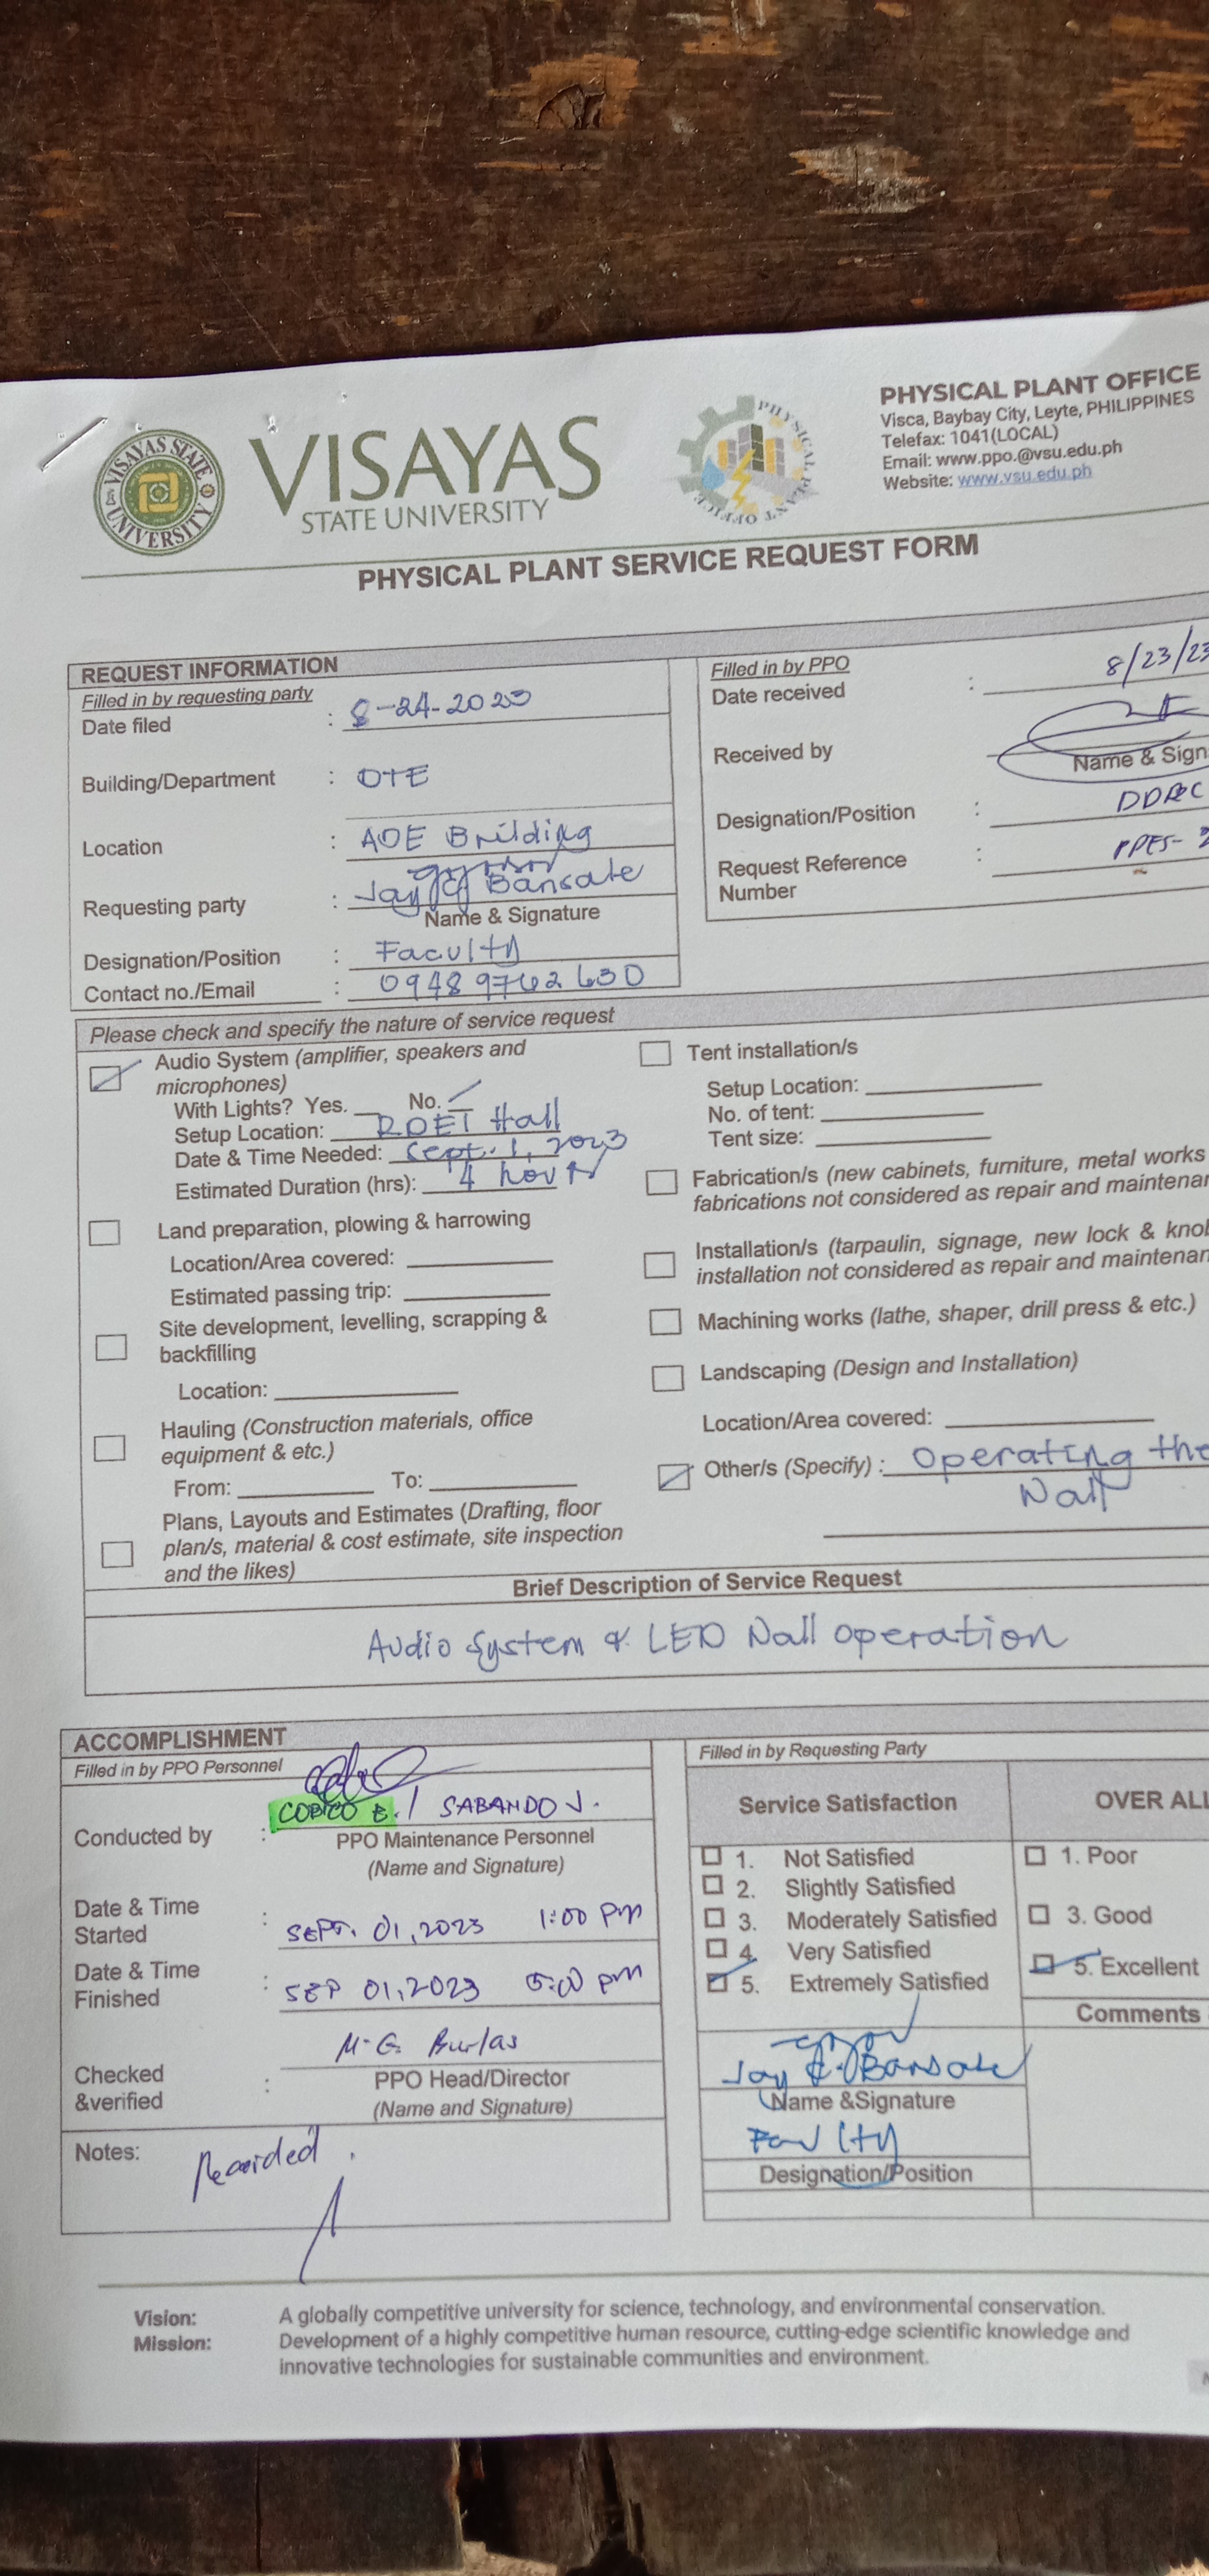 VISAYAS STATE UNIVERSITY
VISAYAS
STATE UNIVERSITY
PHYSICAL PLANT OFFICE
PHYSICAL PLANT OFFICE
Visca, Baybay City, Leyte, PHILIPPINES
Telefax: 1041(LOCAL)
Email: www.ppo.@vsu.edu.ph
Website: www.vsu.edu.ph
PHYSICAL PLANT SERVICE REQUEST FORM
REQUEST INFORMATION
Filled in by requesting party
Date filed : 8-24-2023
Building/Department : OTE
Location : ADE Building
Requesting party : Jay Bansate
Name & Signature
Designation/Position : Faculty
Contact no./Email : 0948 9762 630
Filled in by PPO
Date received : 8/23/23
Received by
Name & Sign
Designation/Position :
Request Reference :
Number
Please check and specify the nature of service request
Audio System (amplifier, speakers and
microphones)
With Lights? Yes. No.
Setup Location: RDET Hall
Date & Time Needed: Sept. 1, 2023
Estimated Duration (hrs): 4 hours
Land preparation, plowing & harrowing
Location/Area covered:
Estimated passing trip:
Site development, levelling, scrapping &
backfilling
Location:
Hauling (Construction materials, office
equipment & etc.)
From: To:
Plans, Layouts and Estimates (Drafting, floor
plan/s, material & cost estimate, site inspection
and the likes)
Tent installation/s
Setup Location:
No. of tent:
Tent size:
Fabrication/s (new cabinets, furniture, metal works
fabrications not considered as repair and maintenan
Installation/s (tarpaulin, signage, new lock & knob
installation not considered as repair and maintenan
Machining works (lathe, shaper, drill press & etc.)
Landscaping (Design and Installation)
Location/Area covered:
Other/s (Specify) : Operating the
Wall
Brief Description of Service Request
Audio System & LED Wall operation
ACCOMPLISHMENT
Filled in by PPO Personnel
Conducted by : COBICO E. / SABANDO J.
PPO Maintenance Personnel
(Name and Signature)
Date & Time
Started : SEPT. 01, 2023 1:00 PM
Date & Time
Finished : SEP 01, 2023 5:00 pm
M. G. Burlas
Checked
&verified : PPO Head/Director
(Name and Signature)
Notes: Recorded.
Filled in by Requesting Party
Service Satisfaction
OVER ALL
1. Not Satisfied
2. Slightly Satisfied
3. Moderately Satisfied
4. Very Satisfied
5. Extremely Satisfied
1. Poor
3. Good
5. Excellent
Comments
Jay Bansate
Name &Signature
Faculty
Designation/Position
Vision: A globally competitive university for science, technology, and environmental conservation.
Mission: Development of a highly competitive human resource, cutting-edge scientific knowledge and
innovative technologies for sustainable communities and environment.